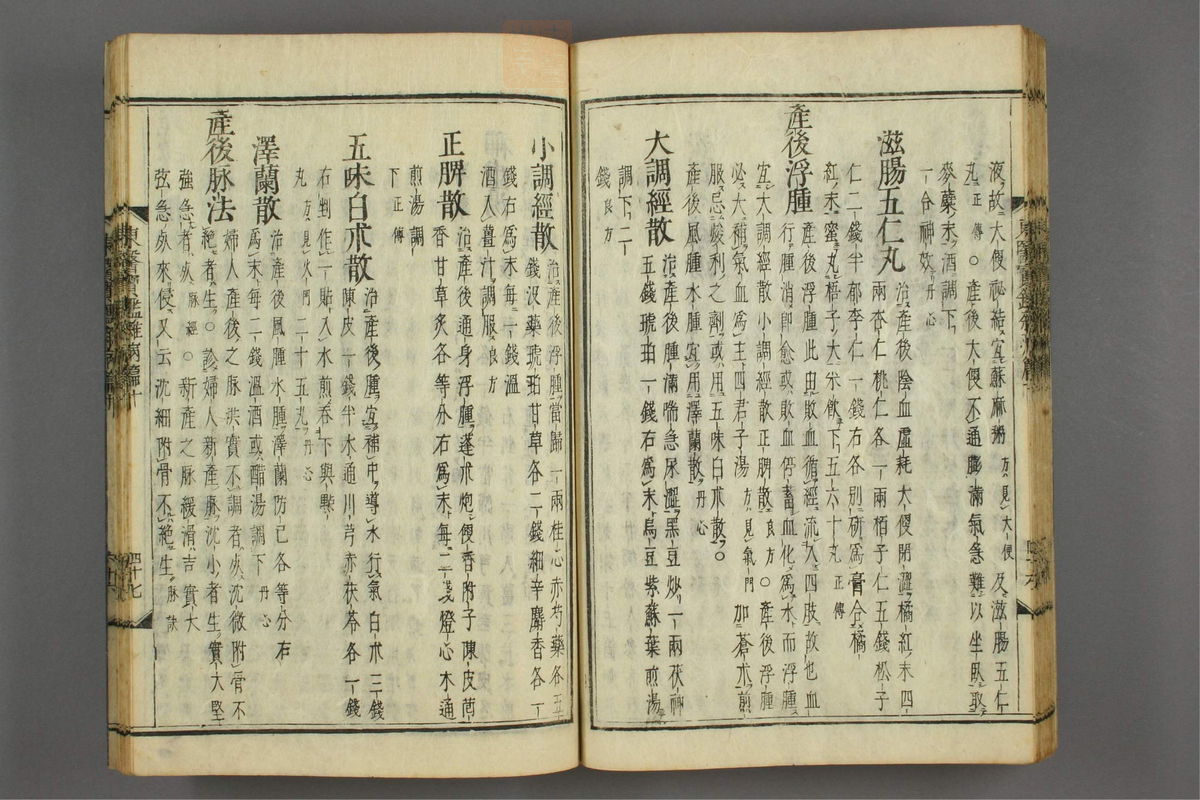 液故大便祕結宜蘇麻粥方見大便及滋腸五仁
丸正傳○產後大便不通膨滿氣急難以坐臥取
麥蘗末酒調下
一合神效丹心
滋腸五仁丸治產後陰血虛耗大便閉澁橘紅末四
兩杏仁桃仁各一兩栢子仁五錢松子
仁二錢半郁李仁一錢右各別硏爲膏合橘
紅末蜜丸梧子大米飮下五六十丸正傳
產後浮腫產後浮腫此由敗血循經流入四肢散也血
行腫消卽愈或敗血停蓄血化爲水而浮腫
宜大調經散小調經散正脾散良方○產後浮腫
必大補氣血爲主四君子湯方見氣門加蒼朮煎
服忌峻利之劑或用五味白朮散○
產後風腫水腫宜用澤蘭散丹心
大調經散治產後腫滿喘急尿澁黑豆炒一兩茯神
五錢琥珀一錢右爲末烏豆紫蘇葉煎湯
調下二
錢良方
小調經散治產後浮腫當歸一兩桂心赤芍藥各五
錢沒藥琥珀甘草各二錢細辛麝香各一
錢右爲末每一錢溫
酒入薑汁調服良方
正脾散治產後通身浮腫蓬朮炮香附子陳皮茴
香甘草炙各等分右爲末每二錢燈心木通
煎湯調
下正傳
五味白朮散治產後腫宜補中導水行氣白朮三錢
陳皮一錢半木通川芎赤茯苓各一錢
右剉作一貼入水煎吞下與點
丸方見火門二十五丸丹心
澤蘭散治產後風腫水腫澤蘭防己各等分右
爲末每二錢溫酒或醋湯調下丹心
產後脉法婦人產後之脉洪實不調者死沈微附骨不
絶者生○診婦人新產脉沈小者生實大堅
強急者死脉經○新產之脉緩滑吉實大
弦急死來侵又云沈細附骨不絶生脉訣
東醫寶鑑雜病篇十
四十七